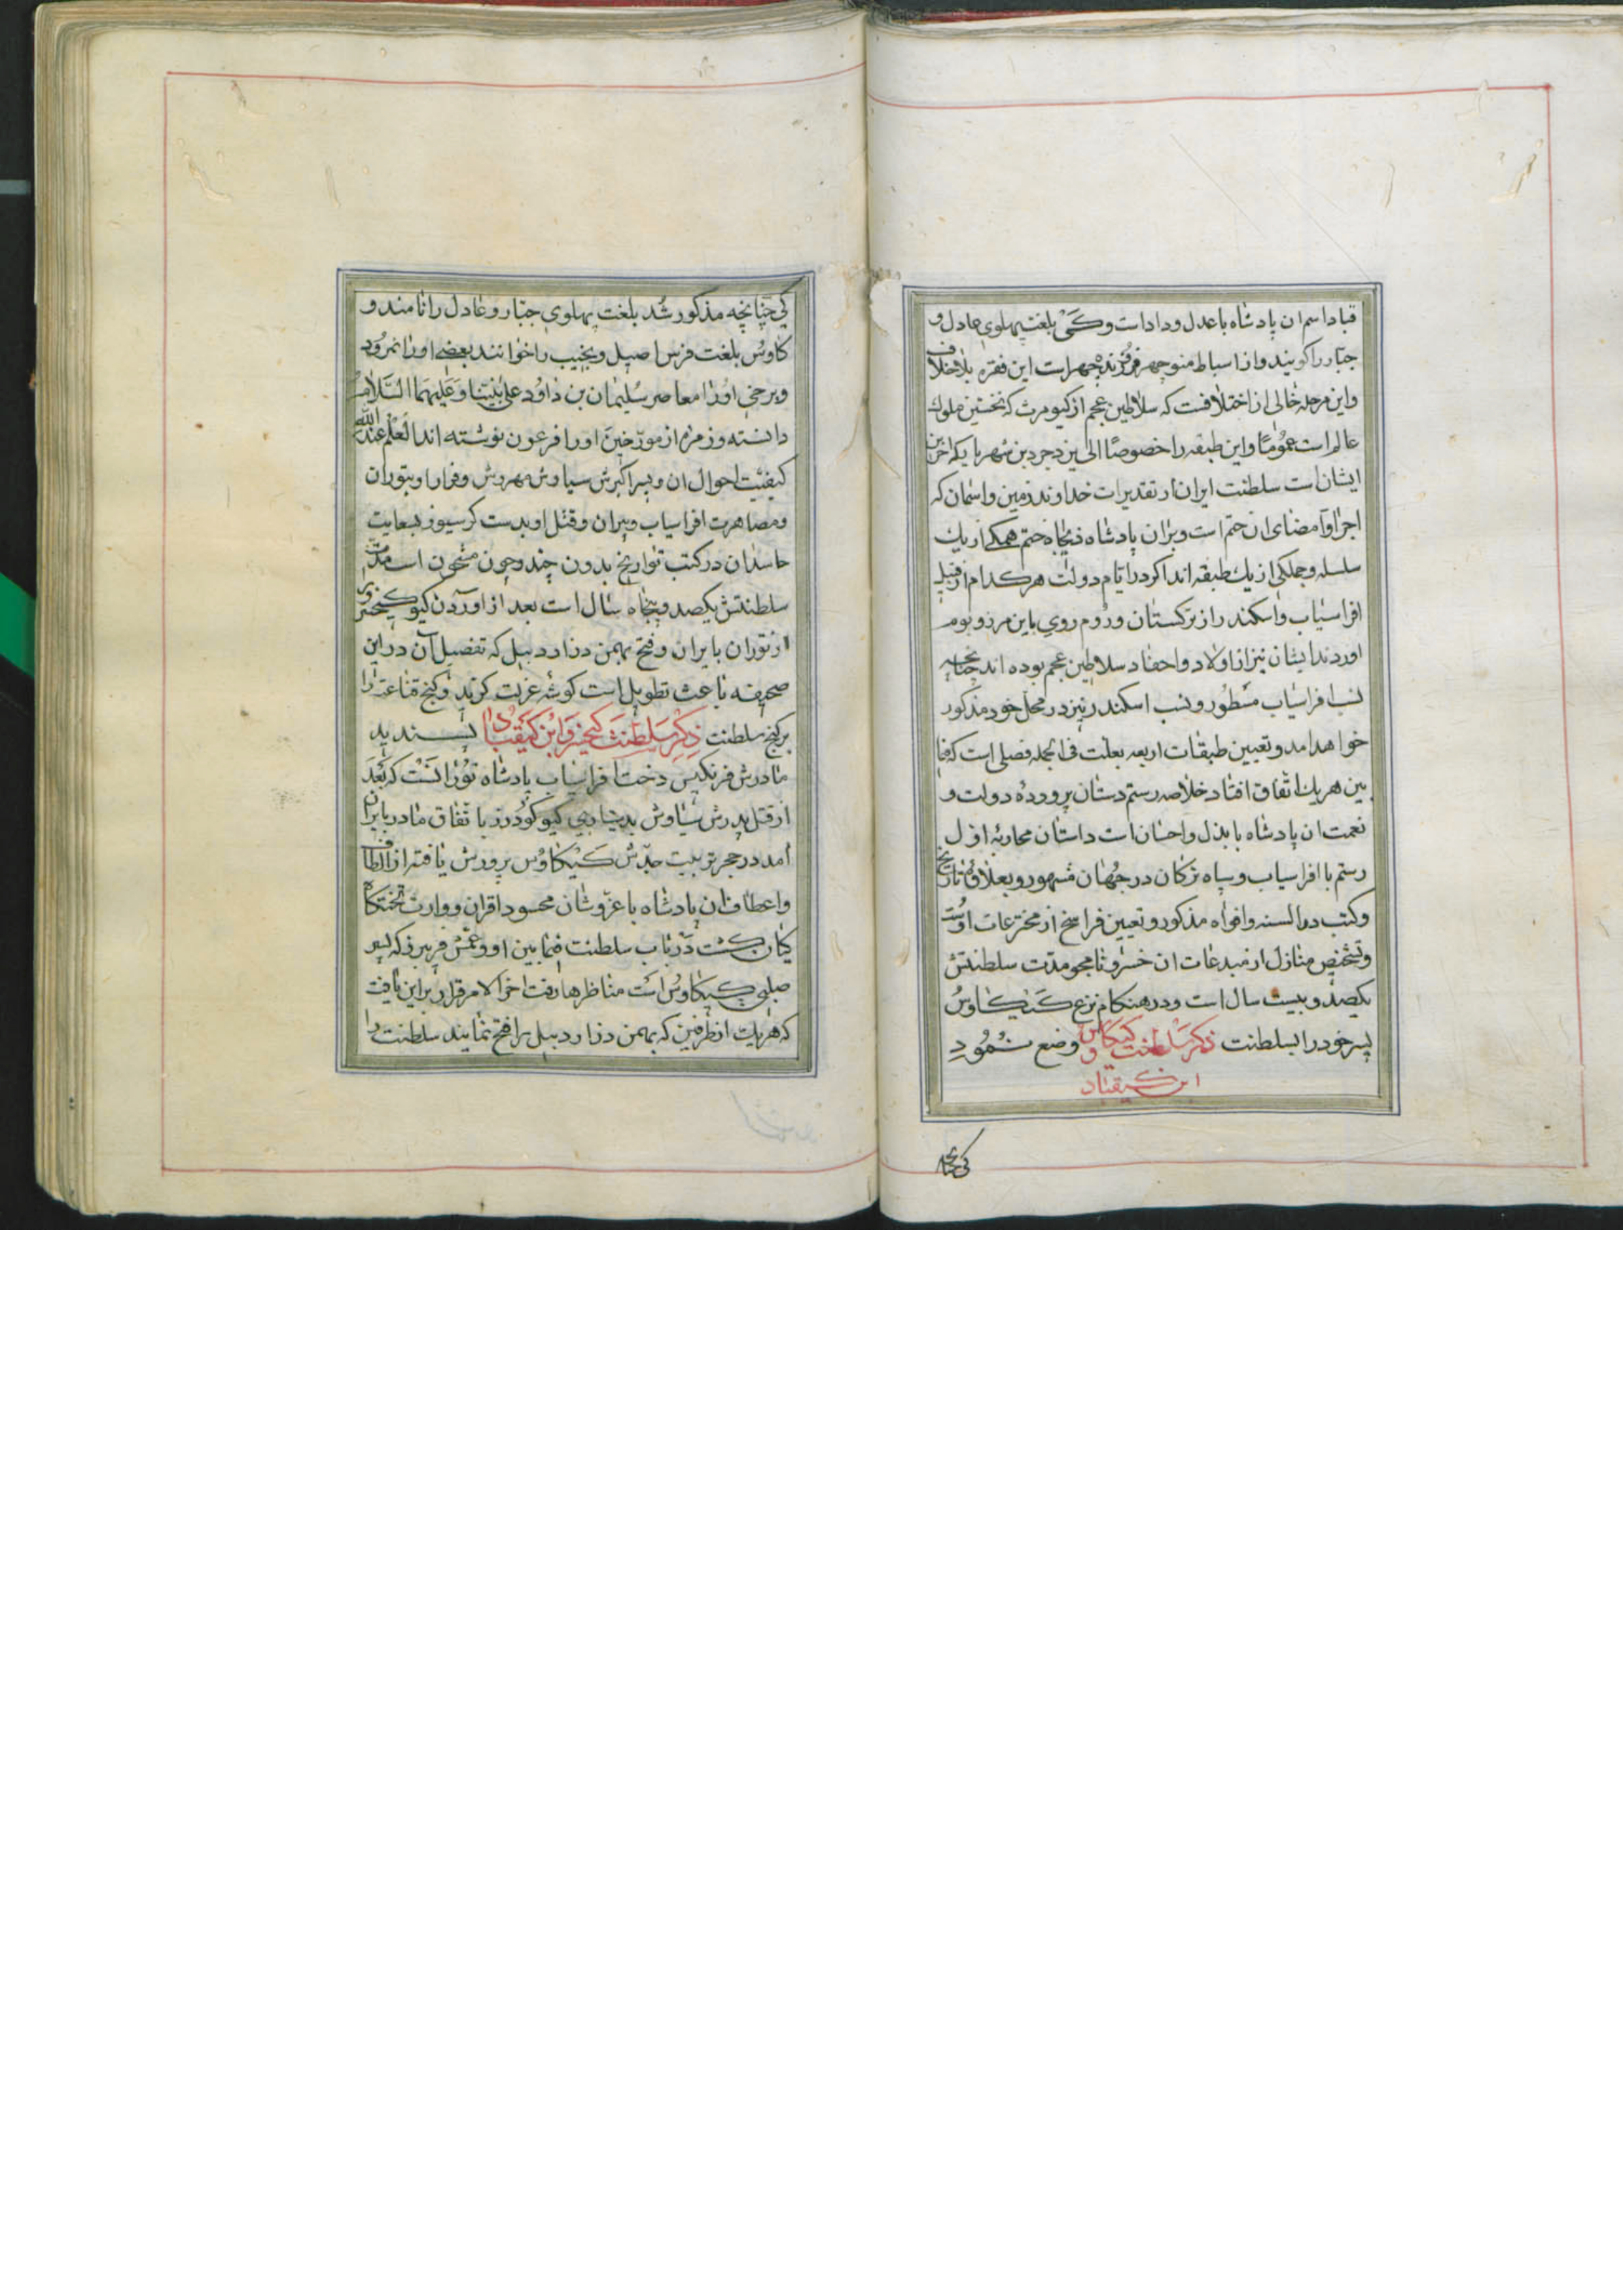 قباد اسم ان پادشاه باعدل و داد است و کَیْ بلغت پهلوی عادل و
جبّار را کویند و از اسباط منوچهر است این فقره بلاخلاف
و این مرحله خالی از اختلافست که سلاطین عجم از کیومرث که نخستین ملوک
عالم است عمومًا و این طبقه را خصوصًا الی یزدجرد بن شهریار که اخرین
ایشان است سلطنت ایران از تقدیرات خداوند زمین و اسمان که
اجرا و امضای ان حتم است وبران پادشاه ذیجاه ختم همکی از یک
سلسله و جملکی از یک طبقه اند اکر در ایّام دولت هر کدام از قبیل
افراسیاب و اسکندر از ترکستان و روم روی باین مرز و بوم
اوردند ایشان نیز از اولاد و احفاد سلاطین عجم بوده اند چنانچه
نسب افراسیاب مسطور و نسب اسکندر نیز در محل خود مذکور
خواهد امد و تعیین طبقات اربعه بعلت فی الجمله فصلی است که فیما
بین هریک اتّفاق افتاد خلاصه رستم دستان پرورده دولت و
نعمت ان پادشاه با بذل و احسان است داستان محاربه اوّل
رستم با افراسیاب و سپاه ترکان در جهان مشهور و بعلاوه تاریخ
و کتب در السنه و افواه مذکور و تعیین فراسخ از مخترعات اوست
و تشخیص منازل از مبدعات ان خسرو نامجو مدّت سلطنتش
یکصد و بیست سال است و در هنکام نزع کیکاوس
پسر خود را بسلطنت ذکر سلطنت کیکاوس وضع نمود
ابن کیقباد
کی چنانچه
کی چنانچه مذکور شد بلغت پهلوی جبّار و عادل را نامند و
کاوس بلغت فرس اصیل و نجیب را خوانند بعضی او را نمرود
و برخی او را معاصر سلیمان بن داود علی نبیّنا و علیهما السّلام
دانسته و زمره از مورّخین او را فرعون نوشته اند العلم عند الله
کیفیّت احوال ان و پسر اکبرش سیاوش مهروش و فرار او بتوران
و مصاهرت افراسیاب و پیران و قتل او بدست کرسیوز بسعایت
حاسدان در کتب تواریخ بدون چند و چون مشحون است مدّت
سلطنتش یکصد و پنجاه سال است بعد از اوردن کیو کیخسرو را
از توران بایران و فتح بهمن دز اردبیل که تفصیل آن در این
صحیفه باعث تطویل است کوشه عزلت کزید و کنج قناعت را
بر کنج سلطنت ذکر سلطنت کیخسرو ابن کیقباد پسندید
مادرش فرنکیس دخت افراسیاب پادشاه تورانست که بعد
از قتل پدرش سیاوش بدستیاری کیو کودرز با تّفاق مادر بایران
آمد در حجر تربیت جدّش کیکاوس پرورش یافته از الطاف
و اعطاف ان پادشاه با عزّ و شان محسود اقران و وارث تختکاه
کیان کشت در باب سلطنت فیما بین او و عمّش فریبرز که پسر
صلبی کیکاوس است مناظرها رفت اخر الامر قرار بر این یافت
که هریک از طرفین که بهمن دز اردبیل را فتح نمایند سلطنت را